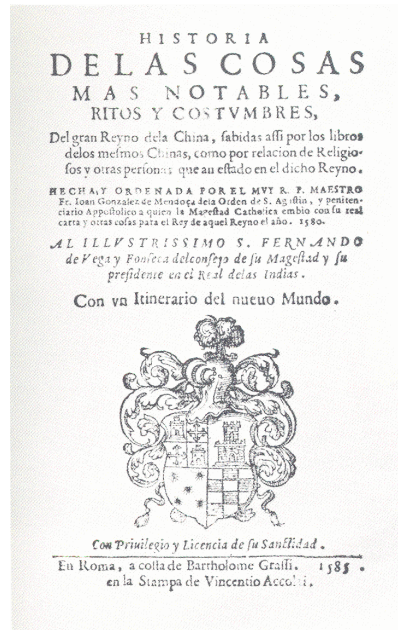 HISTORIA
DE LAS COSAS
MAS NOTABLES,
RITOS Y COSTVMBRES,
Del gran Reyno dela China, sabidas assi por los libros
delos mesmos Chinas, como por relacion de Religio-
sos y otras personas que an estado en el dicho Reyno.
HECHA, Y ORDENADA POR EL MVY R. P. MAESTRO
Fr. Ioan Gonzalez de Mendoça dela Orden de S. Agustin, y peniten-
ciario Appostolico a quien la Magestad Catholica embio con su real
carta y otras cosas para el Rey de aquel Reyno el año. 1580.
AL ILLVSTRISSIMO S. FERNANDO
de Vega y Fonseca del consejo de su Magestad y su
presidente en el Real delas Indias.
Con vn Itinerario del nueuo Mundo.
Con Priuilegio y Licencia de su Sanctidad.
En Roma, a costa de Bartholome Grassi. 1585.
en la Stampa de Vincentio Accolti.